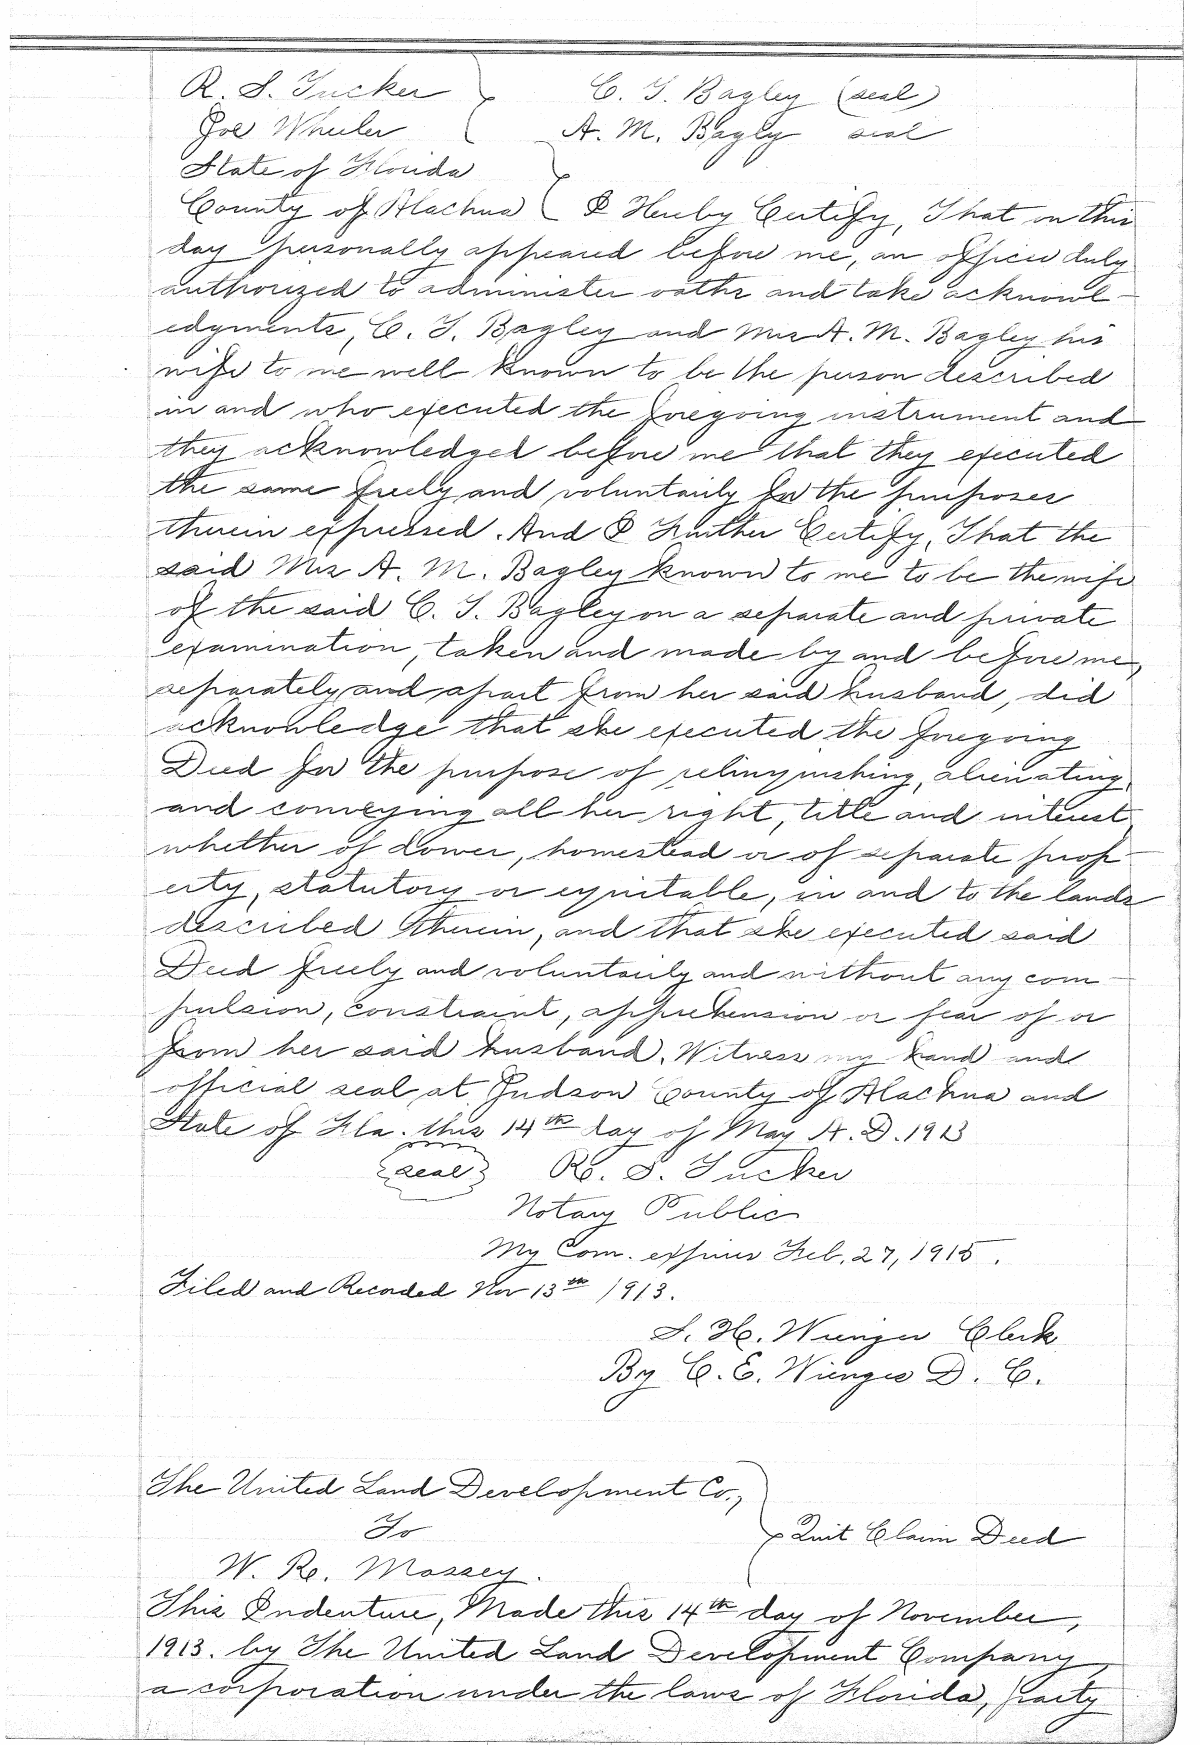 R. S. Tucker C. T. Bagley (seal)
Joe Wheeler A. M. Bagly seal
State of Florida
County of Alachua I Hereby Certify, That on this
day personally appeared before me, an officer duly
authorized to administer oaths and take acknowl-
edgments, C. T. Bagley and Mrs A. M. Bagley his
wife to me well known to be the person described
in and who executed the foregoing instrument and
they acknowledged before me that they executed
the same freely and voluntarily for the purposes
therein expressed. And I Further Certify, That the
said Mrs A. M. Bagley known to me to be the wife
of the said C. T. Bagley on a separate and private
examination, taken and made by and before me,
separately and apart from her said husband, did
acknowledge that she executed the foregoing
Deed for the purpose of relinquishing, alienating,
and conveying all her right, title and interest,
whether of dower, homestead or of separate prop-
erty, statutory or equitable, in and to the lands
described therein, and that she executed said
Deed freely and voluntarily and without any com-
pulsion, constraint, apprehension or fear of or
from her said husband. Witness my hand and
official seal at Judson County of Alachua and
State of Fla. this 14th day of May A. D. 1913
seal R. S. Tucker
Notary Public
My Com. expires Feb. 27, 1915.
Filed and Recorded Nov 13th 1913.
S. H. Wienges Clerk
By C. E. Wienges D. C.
The United Land Development Co.,
To Quit Claim Deed
W. R. Massey.
This Indenture, Made this 14th day of November,
1913. by The United Land Development Company,
a corporation under the laws of Florida, party